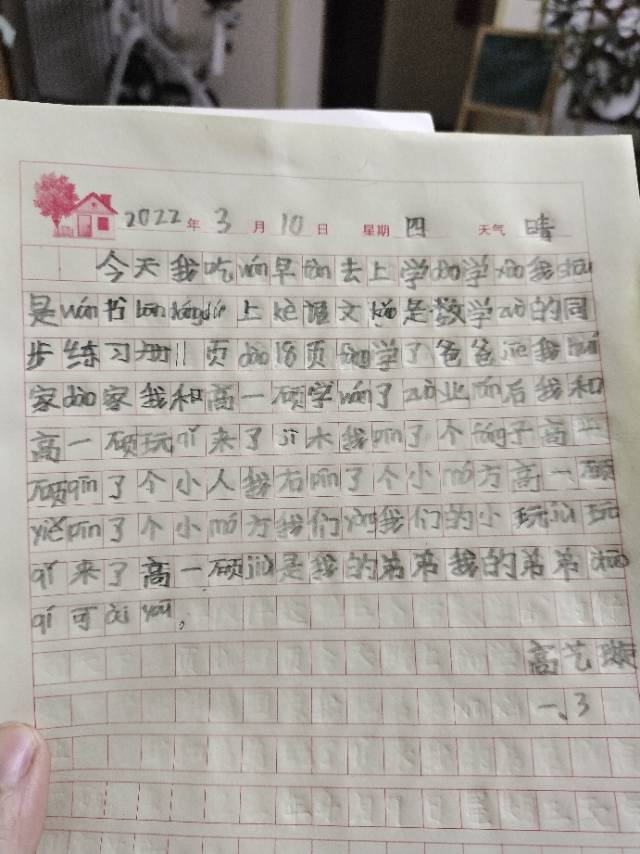 2022年3月10日 星期四 天气 晴
今天我吃wán早fàn去上学dào学xiào我
是wán书 上kè语文kǎo是数学zuò的同
步练习册11页dào18页fàng学了爸爸jiē我huí
家dào家我和高一硕学wán了zuò业rán后我和
高一硕玩qǐ来了jī木我pīn了个fáng子高一
硕pīn了个小人我右pīn了个小mó方高一硕
yiě pīn了个小mó方我们yòng我们的小玩jiù玩
qǐ来了高一硕jiù是我的弟弟我的弟弟
qí可ài yōu。
高艺璇
一、3